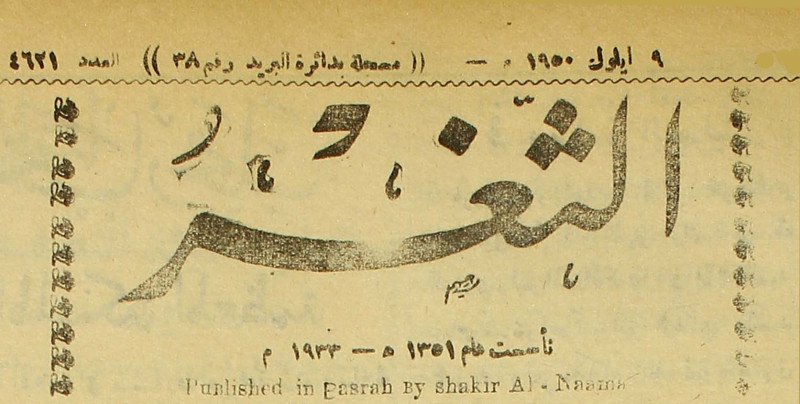 ٩ ايلول ١٩٥٠ م — (( مسجلة بدائرة البريد رقم ٣٨ )) العدد ٤٦٢١
الثَّغْرُ
تأسست عام ١٣٥١ ه — ١٩٣٣ م
Published in Basrah By shakir Al-Naama